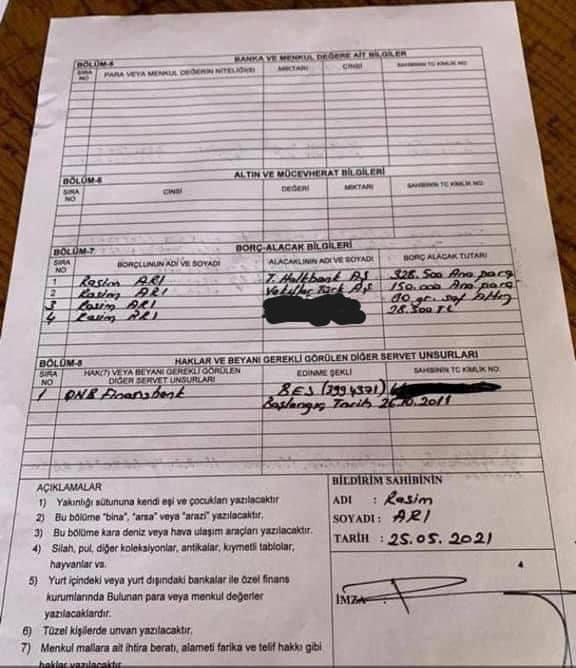 BÖLÜM-6 BANKA VE MENKUL DEĞERE AİT BİLGİLER
SIRA NO PARA VEYA MENKUL DEĞERİN NİTELİĞİ(6) MİKTARI CİNSİ SAHİBİNİN TC KİMLİK NO
BÖLÜM-6 ALTIN VE MÜCEVHERAT BİLGİLERİ
SIRA NO CİNSİ DEĞERİ MİKTARI SAHİBİNİN TC KİMLİK NO
BÖLÜM-7 BORÇ-ALACAK BİLGİLERİ
SIRA NO BORÇLUNUN ADI VE SOYADI ALACAKLININ ADI VE SOYADI BORÇ ALACAK TUTARI
1 Rasim ARI T. Halkbank AŞ 328.500 Ana para
2 Rasim ARI AŞ 150.000 Ana para
3 Rasim ARI 80 gr. saf Altın
4 Rasim ARI 28.500 TL
BÖLÜM-8 HAKLAR VE BEYANI GEREKLİ GÖRÜLEN DİĞER SERVET UNSURLARI
SIRA NO HAK(7) VEYA BEYANI GEREKLİ GÖRÜLEN DİĞER SERVET UNSURLARI EDİNME ŞEKLİ SAHİBİNİN TC KİMLİK NO
1 QNB Finansbank BES (3994371)
Başlangıç Tarih 26.10.2011
AÇIKLAMALAR
1) Yakınlığı sütununa kendi eşi ve çocukları yazılacaktır
2) Bu bölüme "bina", "arsa" veya "arazi" yazılacaktır.
3) Bu bölüme kara deniz veya hava ulaşım araçları yazılacaktır.
4) Silah, pul, diğer koleksiyonlar, antikalar, kıymetli tablolar,
hayvanlar vs.
5) Yurt içindeki veya yurt dışındaki bankalar ile özel finans
kurumlarında Bulunan para veya menkul değerler
yazılacaklardır.
6) Tüzel kişilerde unvan yazılacaktır.
7) Menkul mallara ait ihtira beratı, alameti farika ve telif hakkı gibi
haklar yazılacaktır
BİLDİRİM SAHİBİNİN
ADI : Rasim
SOYADI : ARI
TARİH : 25.05.2021
İMZA